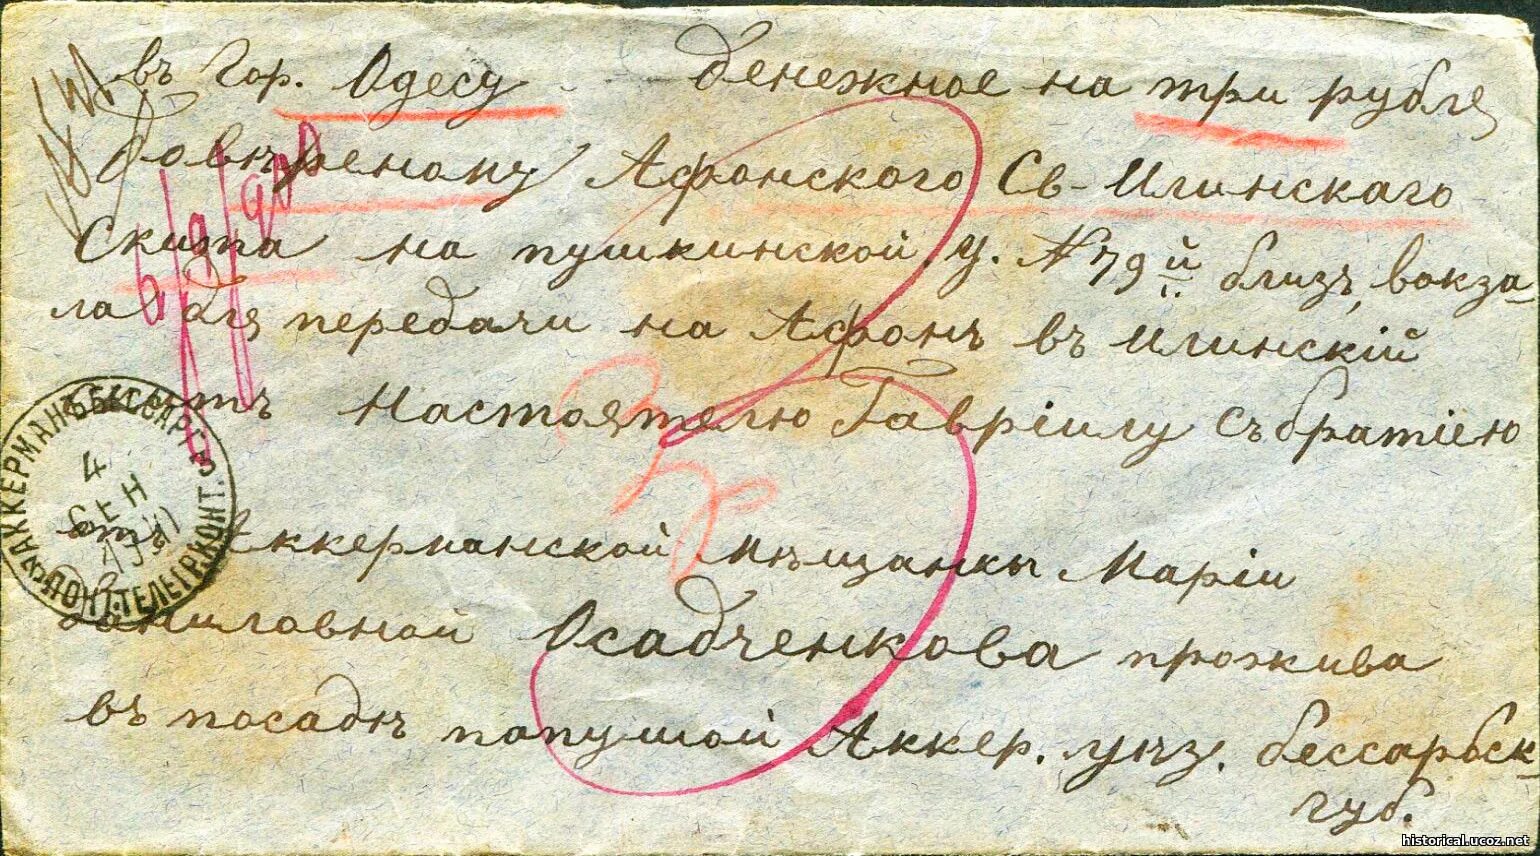 въ Гор. Одесу денежное на три рубля
Довѣреному Афонского Св-Илинскаго
Скита на пушкинской у. № 79й близъ вокза-
ла для передачи на Афонъ в Илинскій
Настоятелю Гавріилу съ братіею
отъ Аккерманской мѣщанки Маріи
Даниловной Осадченкова прожива
въ посадѣ папушой Аккер. уѣз. бессарбск-
губ.
АККЕРМАНЪ БЕССАР.
4
СЕН
ПОЧТ.ТЕЛЕГР.КОНТ.
historical.ucoz.net